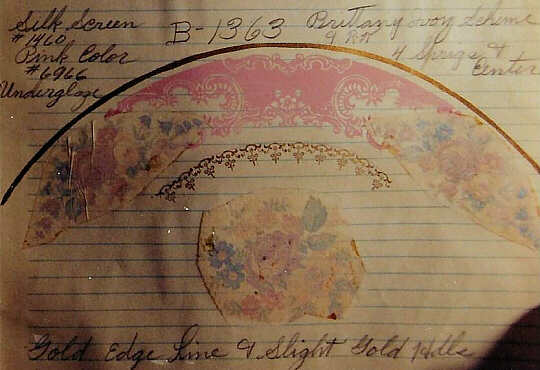 Silk Screen
#1460
Pink Color
#6966
Underglaze
B-1363
Brittany Ivory Scheme
9 Rn
4 Sprigs &
Center
Gold Edge Line & Slight Gold Hdls